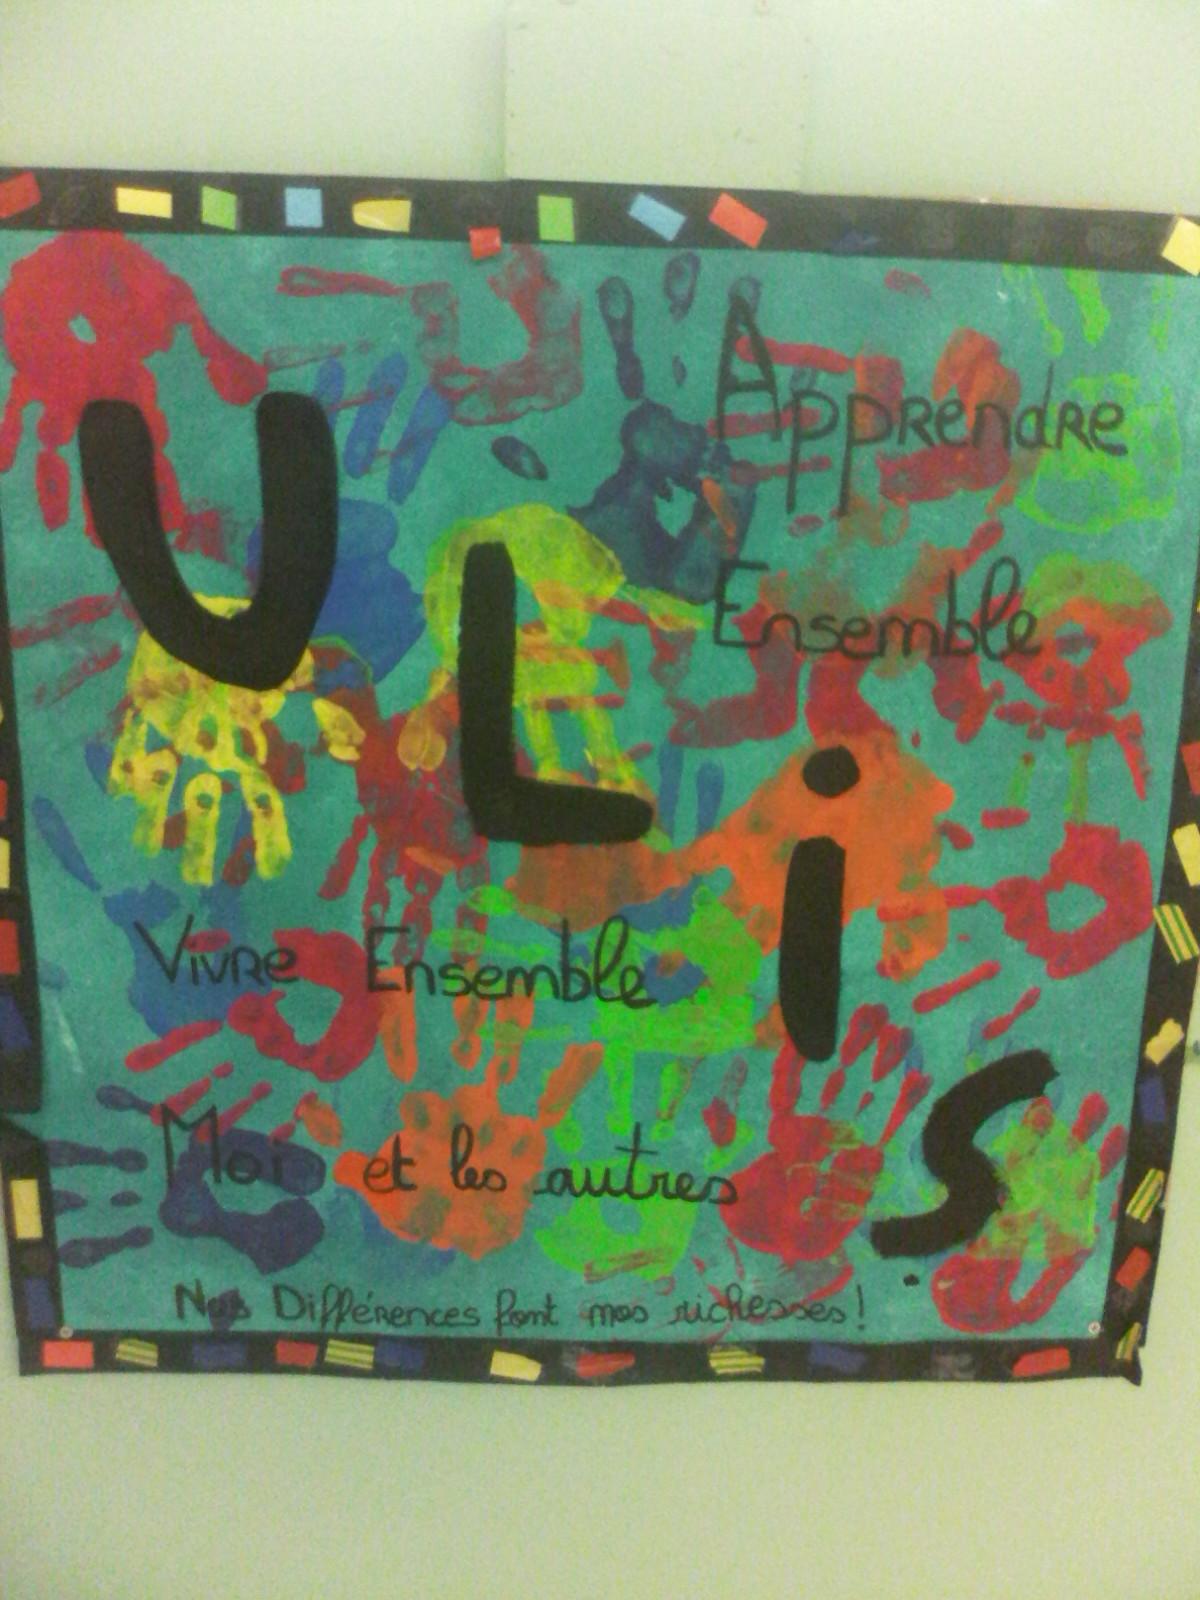 ULiS
Apprendre
Ensemble
Vivre Ensemble
Moi et les autres
Nos Différences font nos richesses!